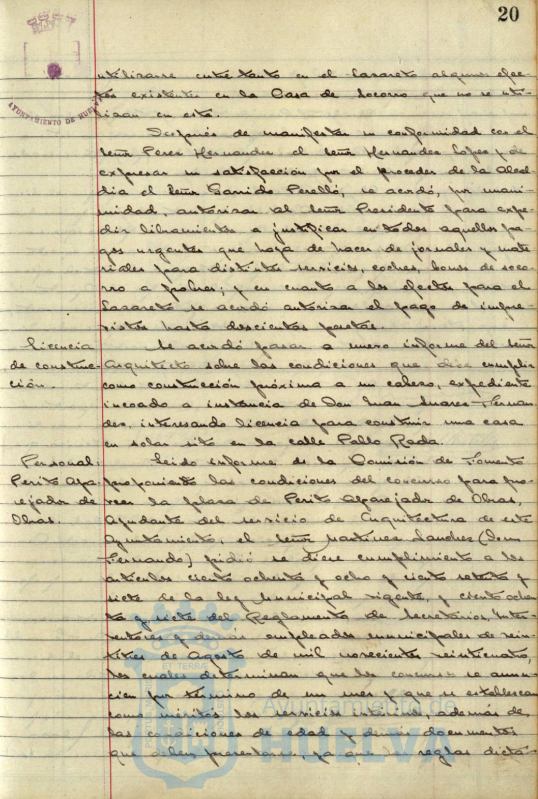 20
AYUNTAMIENTO DE HUELVA
utilizarse entre tanto en el Lazareto algunos efec-
tos existentes en la Casa de Socorro que no se uti-
lizan en esta.
Después de manifestar su conformidad con el
Señor Perez Hernandez el Señor Hernandez Lopez y de
expresar su satisfacción por el proceder de la Alcal-
dia el Señor Garrido Perelló, se acordó, por unani-
midad, autorizar al Señor Presidente para expe-
dir libramientos a justificar en todos aquellos pa-
gos urgentes que haya de hacer de jornales y mate-
riales para distintos servicios, coches, bonos de soco-
rro a pobres; y en cuanto a los efectos para el
Lazareto se acordó autorizar el pago de impre-
vistos hasta doscientas pesetas.
Licencia
de construc-
ción.
Se acordó pasar a nuevo informe del Señor
Arquitecto sobre las condiciones que debe cumplir
como construcción próxima a un cabezo, expediente
incoado a instancia de Don Juan Suarez Fernan-
dez, interesando licencia para construir una casa
en solar sito en la calle Pablo Rada.
Personal:
Perito Apa-
rejador de
Obras.
Leido informe de la Comisión de Fomento
proponiendo las condiciones del concurso para pro-
veer la plaza de Perito Aparejador de Obras,
Ayudante del servicio de Arquitectura de este
Ayuntamiento, el Señor Martinez Sanchez (Don
Fernando) pidió se diese cumplimiento a los
artículos ciento ochenta y ocho y ciento setenta y
siete de la ley Municipal vigente, y ciento ochen-
ta y siete del Reglamento de Secretarios, Inter-
ventores y demás empleados municipales de vein-
titres de Agosto de mil novecientos veinticuatro,
los cuales determinan que los concursos se anun-
cien por término de un mes y que se establezcan
como méritos los servicios interinos, además de
las condiciones de edad y demás documentos
que deben presentarse, ya que las reglas dicta-
Ayuntamiento de
HUELVA